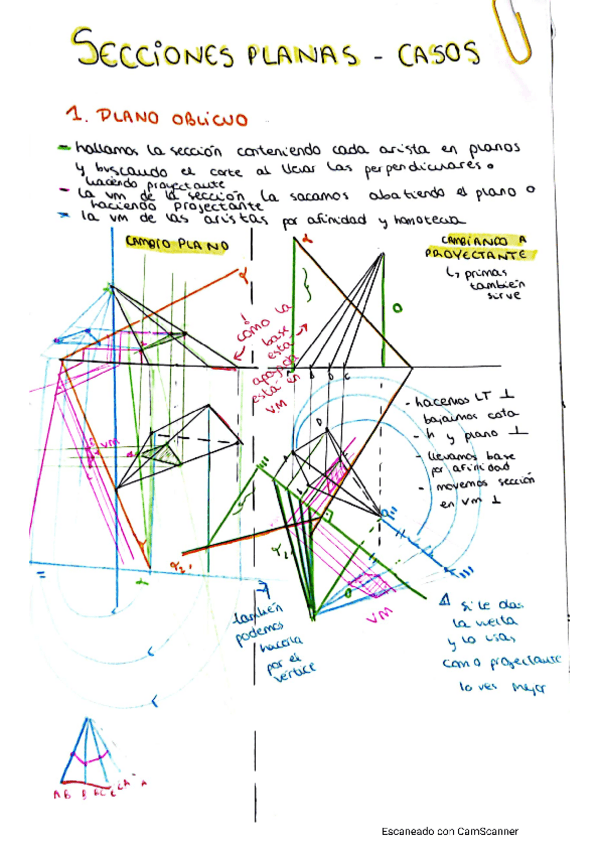 SECCIONES PLANAS - CASOS
1. PLANO OBLICUO
- hallamos la sección conteniendo cada arista en planos
y buscando el corte al llevar las perpendiculares.
haciendo proyectante
- la vm de la sección la sacamos abatiendo el plano o
haciendo proyectante
- la vm de las aristas por afinidad y homotecia
CAMBIO PLANO
CAMBIANDO A
PROYECTANTE
↳ primas
también
sirve
cómo la
base
está
apoyada
está en
VM
- hacemos LT ⊥
bajamos cota
- h y plano ⊥
- llevamos base
por afinidad
- movemos sección
en vm ⊥
VM
VM
también
podemos
hacerla
por el
vértice
si le das
la vuelta
y lo usas
como proyectante
lo ves mejor
Escaneado con CamScanner